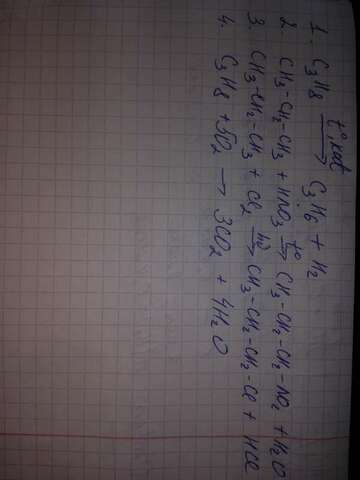 1. C3H8 t°, kat → C3H6 + H2
2. CH3-CH2-CH3 + HNO3 t° → CH3-CH2-CH2-NO2 + H2O
3. CH3-CH2-CH3 + Cl2 hν → CH3-CH2-CH2-Cl + HCl
4. C3H8 + 5O2 → 3CO2 + 4H2O